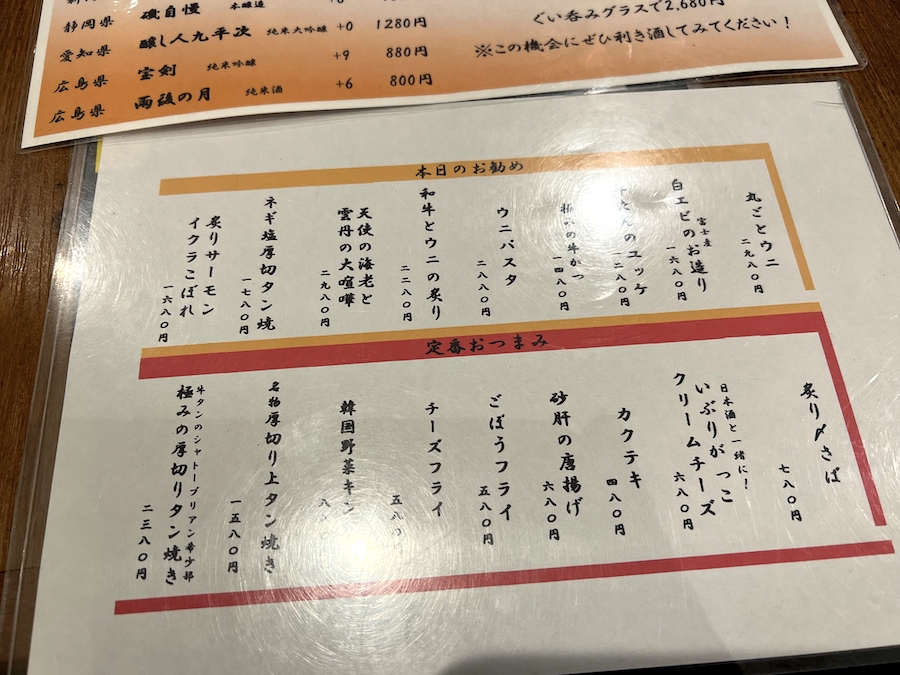 静岡県 磯自慢 本醸造
愛知県 醸し人九平次 純米大吟醸 +0 1280円
広島県 宝剣 純米吟醸 +9 880円
広島県 雨後の月 純米酒 +6 800円
ぐい呑みグラスで2,680円
※この機会にぜひ利き酒してみてください!
本日のお勧め
丸ごとウニ
二九八〇円
富士産
白エビのお造り
一六八〇円
のユッケ
一二八〇円
の牛かつ
一四八〇円
ウニパスタ
二八八〇円
和牛とウニの炙り
二二八〇円
天使の海老と
雲丹の大喧嘩
二九八〇円
ネギ塩厚切タン焼
一七八〇円
炙りサーモン
イクラこぼれ
一六八〇円
定番おつまみ
炙り〆さば
七八〇円
日本酒と一緒に!
いぶりがっこ
クリームチーズ
六八〇円
カクテキ
四八〇円
砂肝の唐揚げ
六八〇円
ごぼうフライ
五八〇円
チーズフライ
五八〇
韓国野菜キン
名物厚切り上タン焼き
一五八〇円
牛タンのシャトーブリアン希少部
極みの厚切りタン焼き
二三八〇円